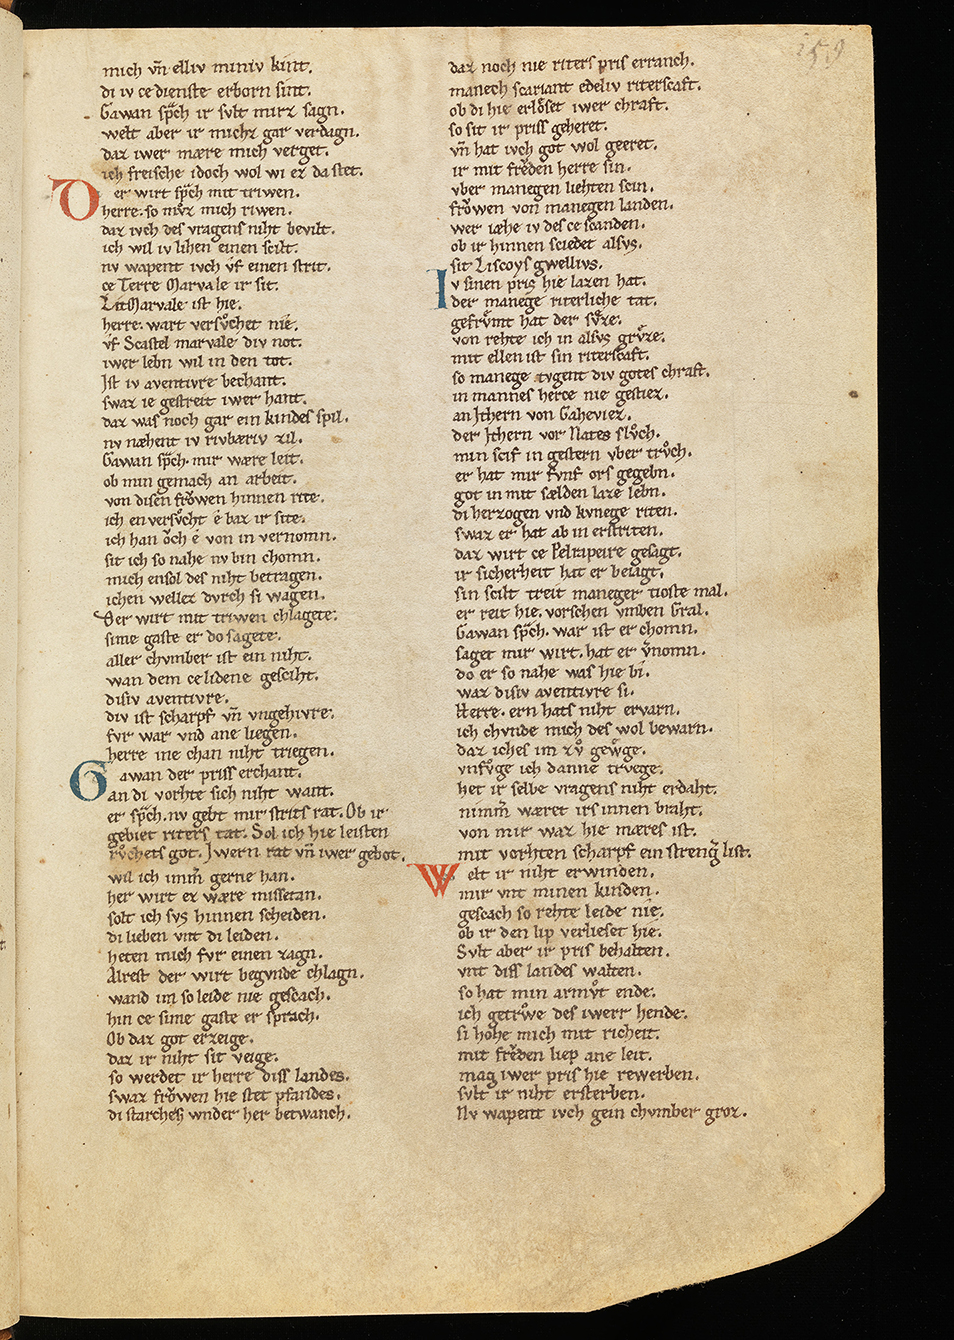 259
mich vñ elliv miniv kint.
di iv ce dienste erborn sint.
Gawan sp̄ch ir svlt mirz sagn.
welt aber ir michz gar verdagn.
daz iwer mære mich verget.
ich freische idoch wol wi ez da stet.
Der wirt sp̄ch mit triwen.
herre. so mvͦz mich riwen.
daz ivch des vragens niht bevilt.
ich wil iv lihen einen scilt.
nv wapent ivch vf einen strit.
ce Terre Marvale ir sit.
Lit Marvale ist hie.
herre. wart versvͦchet nie.
vf Scastel marvale div not.
iwer lebn wil in den tot.
Ist iv aventivre bechant.
swaz ie gestreit iwer hant.
daz was noch gar ein kindes spil.
nv næhent iv rivbæriv zil.
Gawan sp̄ch. mir wære leit.
ob min gemach an arbeit.
von disen frowen hinnen rite.
ich en versvͦcht e baz ir site.
ich han och e von in vernomn.
sit ich so nahe nv bin chomn.
mich ensol des niht betragen.
ichen wellez dvrch si wagen.
Der wirt mit triwen chlagete.
sime gaste er do sagete.
aller chvmber ist ein niht.
wan dem ce lidene gesciht.
disiv aventivre.
div ist scharpf vñ vngehivre.
fvr war vnd ane liegen.
herre ine chan niht triegen.
Gawan der priss erchant.
an di vorhte sich niht want.
er sp̄ch. nv gebt mir strits rat. Ob ir
gebiet riters tat. Sol ich hie leisten
rvͦchets got. Iwern rat vñ iwer gebot.
wil ich imm̄ gerne han.
her wirt ez wære missetan.
solt ich svs hinnen scheiden.
di lieben vnt di leiden.
heten mich fvr einen zagn.
Alrest der wirt begvnde chlagn.
wand im so leide nie gescach.
hin ce sime gaste er sprach.
Ob daz got erzeige.
daz ir niht sit veige.
so werdet ir herre diss landes.
swaz frowen hie stet pfandes.
di starchez wnder her betwanch.
daz noch nie riters pris erranch.
manech scariant edeliv riterscaft.
ob di hie erlôset iwer chraft.
so sit ir priss geheret.
vñ hat ivch got wol geeret.
ir mit freden herre sin.
vber manegen liehten scin.
frowen von manegen landen.
wer iæhe iv des ce scanden.
ob ir hinnen sciedet alsvs.
sit Liscoys gwellivs.
Iv sinen pris hie lazen hat.
der manege riterliche tat.
gefrvmt hat der svͦze.
von rehte ich in alsvs grvͦze.
mit ellen ist sin riterscaft.
so manege tvgent div gotes chraft.
in mannes herce nie gestiez.
an Ithern von Gaheviez.
der Ithern vor Nates slvͦch.
min scif in gestern vber trvͦch.
er hat mir fvnf ors gegebn.
got in mit sælden laze lebn.
di herzogen vnd kvnege riten.
swaz er hat ab in erstriten.
daz wirt ce Pelrapeire gesagt.
ir sicherheit hat er beiagt.
sin scilt treit maneger tioste mal.
er reit hie. vorschen vmben Gral.
Gawan sp̄ch. war ist er chomn.
saget mir wirt. hat er v̄nomn.
do er so nahe was hie bi.
waz disiv aventivre si.
Herre. ern hats niht ervarn.
ich chvnde mich des wol bewarn.
daz iches im zvͦ gewͦge.
vnfvͦge ich danne trvege.
het ir selbe vragens niht erdaht.
nimm̄ wæret irs innen braht.
von mir waz hie mæres ist.
mit vorhten scharpf ein strenḡ list.
Welt ir niht erwinden.
mir vnt minen kinden.
gescach so rehte leide nie.
ob ir den lip verlieset hie.
Svlt aber ir pris behalten.
vnt diss landes walten.
so hat min armvͦt ende.
ich getrwͦe des iwerr hende.
si hohe mich mit richeit.
mit freden liep ane leit.
mag iwer pris hie rewerben.
svlt ir niht ersterben.
Nv wapent ivch gein chvmber groz.